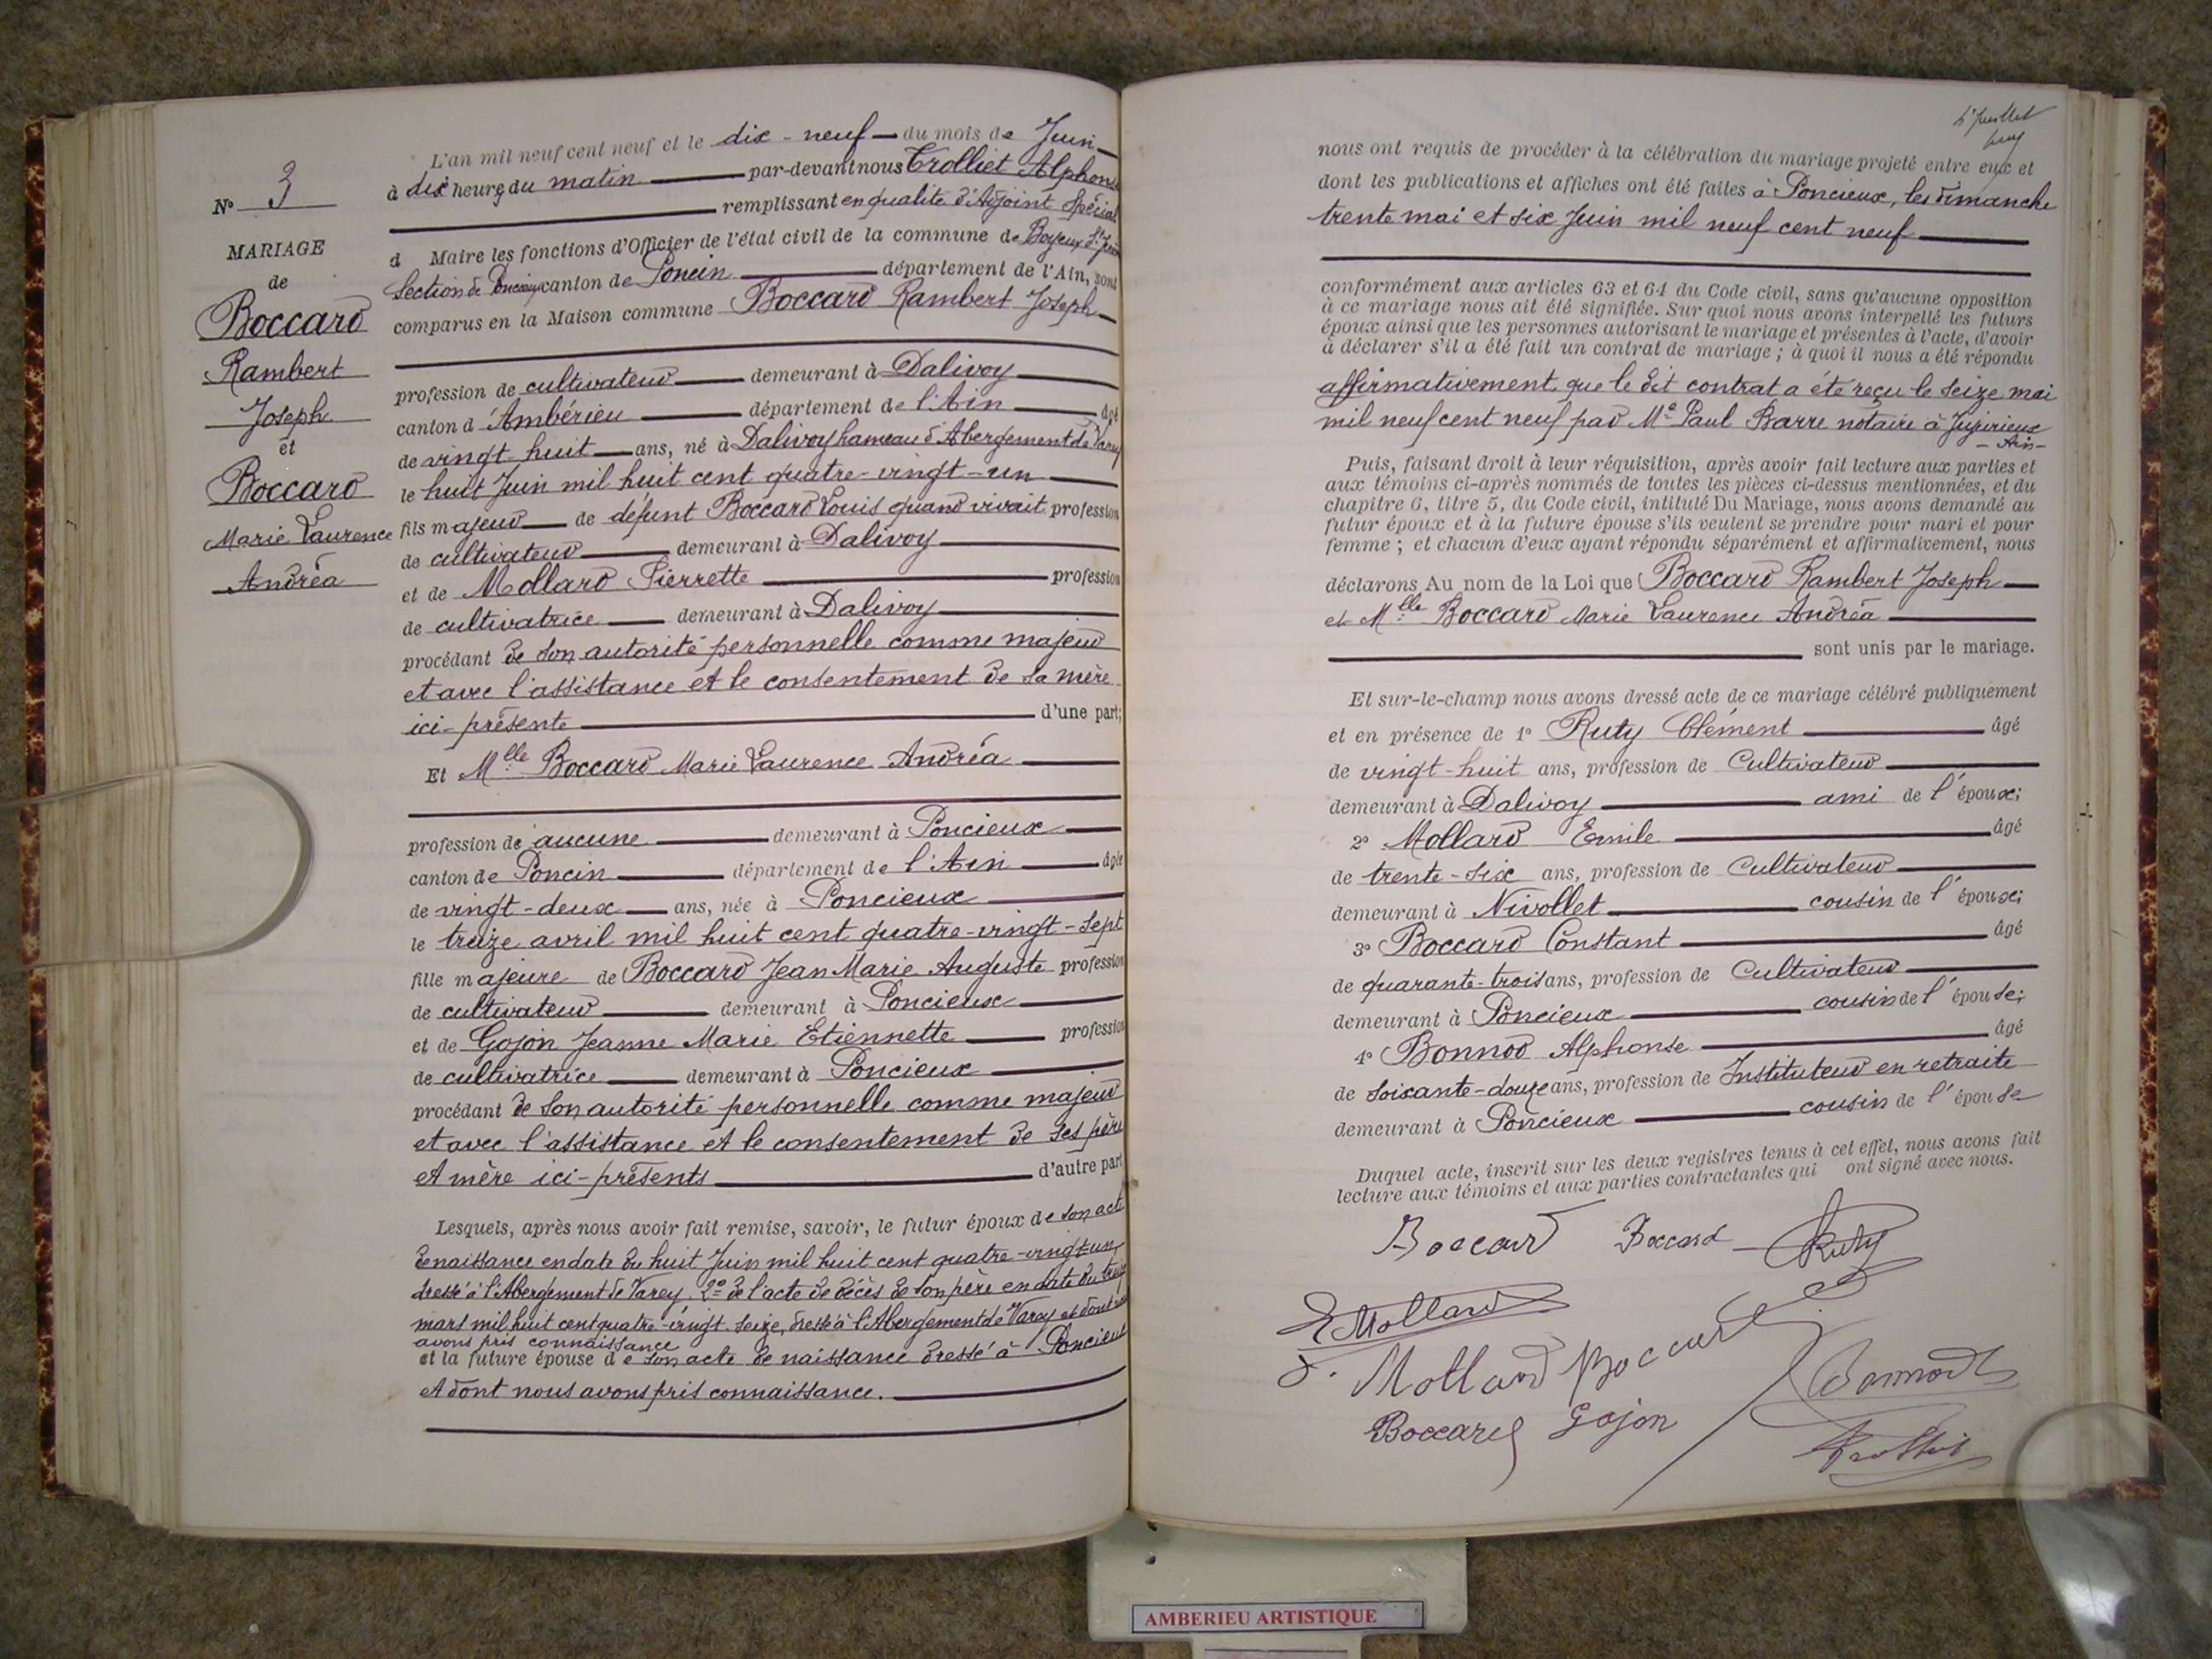 N° 3
MARIAGE
de
Boccard
Rambert
Joseph
et
Boccard
Marie Laurence
Andréa
L'an mil neuf cent neuf et le dix-neuf du mois de Juin
à dix heures du matin par-devant nous Trolliet Alphonse
remplissant en qualité d'Adjoint Spécial
d Maire les fonctions d'Officier de l'état civil de la commune de Boyeux St Jérôme
Section de Poncieux canton de Poncin département de l'Ain, sont
comparus en la Maison commune Boccard Rambert Joseph
profession de cultivateur demeurant à Dalivoy
canton d'Ambérieu département de l'Ain âgé
de vingt-huit ans, né à Dalivoy hameau d'Abergement de Varey
le huit Juin mil huit cent quatre-vingt-un
fils majeur de défunt Boccard Louis quand vivait profession
de cultivateur demeurant à Dalivoy
et de Mollard Pierrette profession
de cultivatrice demeurant à Dalivoy
procédant de son autorité personnelle comme majeur
et avec l'assistance et le consentement de sa mère
ici-présente d'une part;
Et Mlle Boccard Marie Laurence Andréa
profession de aucune demeurant à Poncieux
canton de Poncin département de l'Ain âgée
de vingt-deux ans, née à Poncieux
le treize avril mil huit cent quatre-vingt-sept
fille majeure de Boccard Jean Marie Auguste profession
de cultivateur demeurant à Poncieux
et de Gojon Jeanne Marie Etiennette profession
de cultivatrice demeurant à Poncieux
procédant de son autorité personnelle comme majeur
et avec l'assistance et le consentement de ses père
et mère ici-présents d'autre part
Lesquels, après nous avoir fait remise, savoir, le futur époux de son acte
de naissance en date du huit Juin mil huit cent quatre-vingt-un,
dressé à l'Abergement de Varey. 2° de l'acte de décès de son père en date du treize
mars mil huit cent quatre-vingt-seize, dressé à l'Abergement de Varey et dont nous
avons pris connaissance
et la future épouse de son acte de naissance dressé à Poncieux
et dont nous avons pris connaissance.
Juillet
nous ont requis de procéder à la célébration du mariage projeté entre eux et
dont les publications et affiches ont été faites à Poncieux, les dimanche
trente mai et six Juin mil neuf cent neuf
conformément aux articles 63 et 64 du Code civil, sans qu'aucune opposition
à ce mariage nous ait été signifiée. Sur quoi nous avons interpellé les futurs
époux ainsi que les personnes autorisant le mariage et présentes à l'acte, d'avoir
à déclarer s'il a été fait un contrat de mariage ; à quoi il nous a été répondu
affirmativement, que le dit contrat a été reçu le seize mai
mil neuf cent neuf par Me Paul Barre notaire à Jujurieux
- Ain -
Puis, faisant droit à leur réquisition, après avoir fait lecture aux parties et
aux témoins ci-après nommés de toutes les pièces ci-dessus mentionnées, et du
chapitre 6, titre 5, du Code civil, intitulé Du Mariage, nous avons demandé au
futur époux et à la future épouse s'ils veulent se prendre pour mari et pour
femme ; et chacun d'eux ayant répondu séparément et affirmativement, nous
déclarons Au nom de la Loi que Boccard Rambert Joseph
et Mlle Boccard Marie Laurence Andréa
sont unis par le mariage.
Et sur-le-champ nous avons dressé acte de ce mariage célébré publiquement
et en présence de 1° Ruty Clément âgé
de vingt-huit ans, profession de Cultivateur
demeurant à Dalivoy ami de l'époux;
2° Mollard Emile âgé
de trente-six ans, profession de Cultivateur
demeurant à Nivollet cousin de l'époux;
3° Boccard Constant âgé
de quarante-trois ans, profession de Cultivateur
demeurant à Poncieux cousin de l'épouse;
4° Bonnod Alphonse âgé
de soixante-douze ans, profession de Instituteur en retraite
demeurant à Poncieux cousin de l'épouse
Duquel acte, inscrit sur les deux registres tenus à cet effet, nous avons fait
lecture aux témoins et aux parties contractantes qui ont signé avec nous.
Boccard Boccard Ruty
E Mollard
Mollard Boccard
Bonnod
Boccard Gojon
Trolliet
AMBERIEU ARTISTIQUE